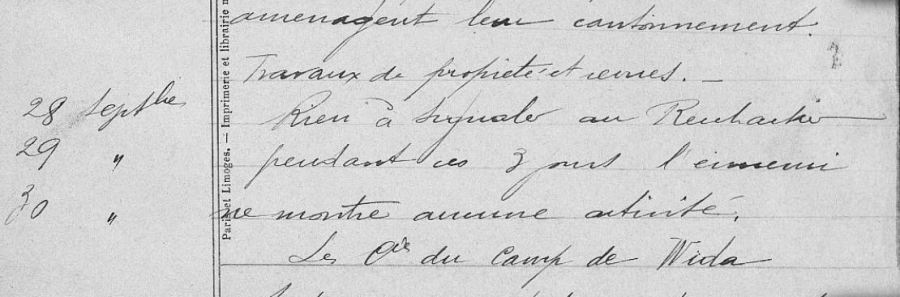 aménagent leur cantonnement.
Travaux de propreté et revues. —
28 Septbre
Rien à signaler au Reichacker
29 "
pendant ces 3 jours l'ennemi
30 "
ne montre aucune activité.
Les Cies du Camp de Wida
Paris et Limoges. — Imprimerie et librairie